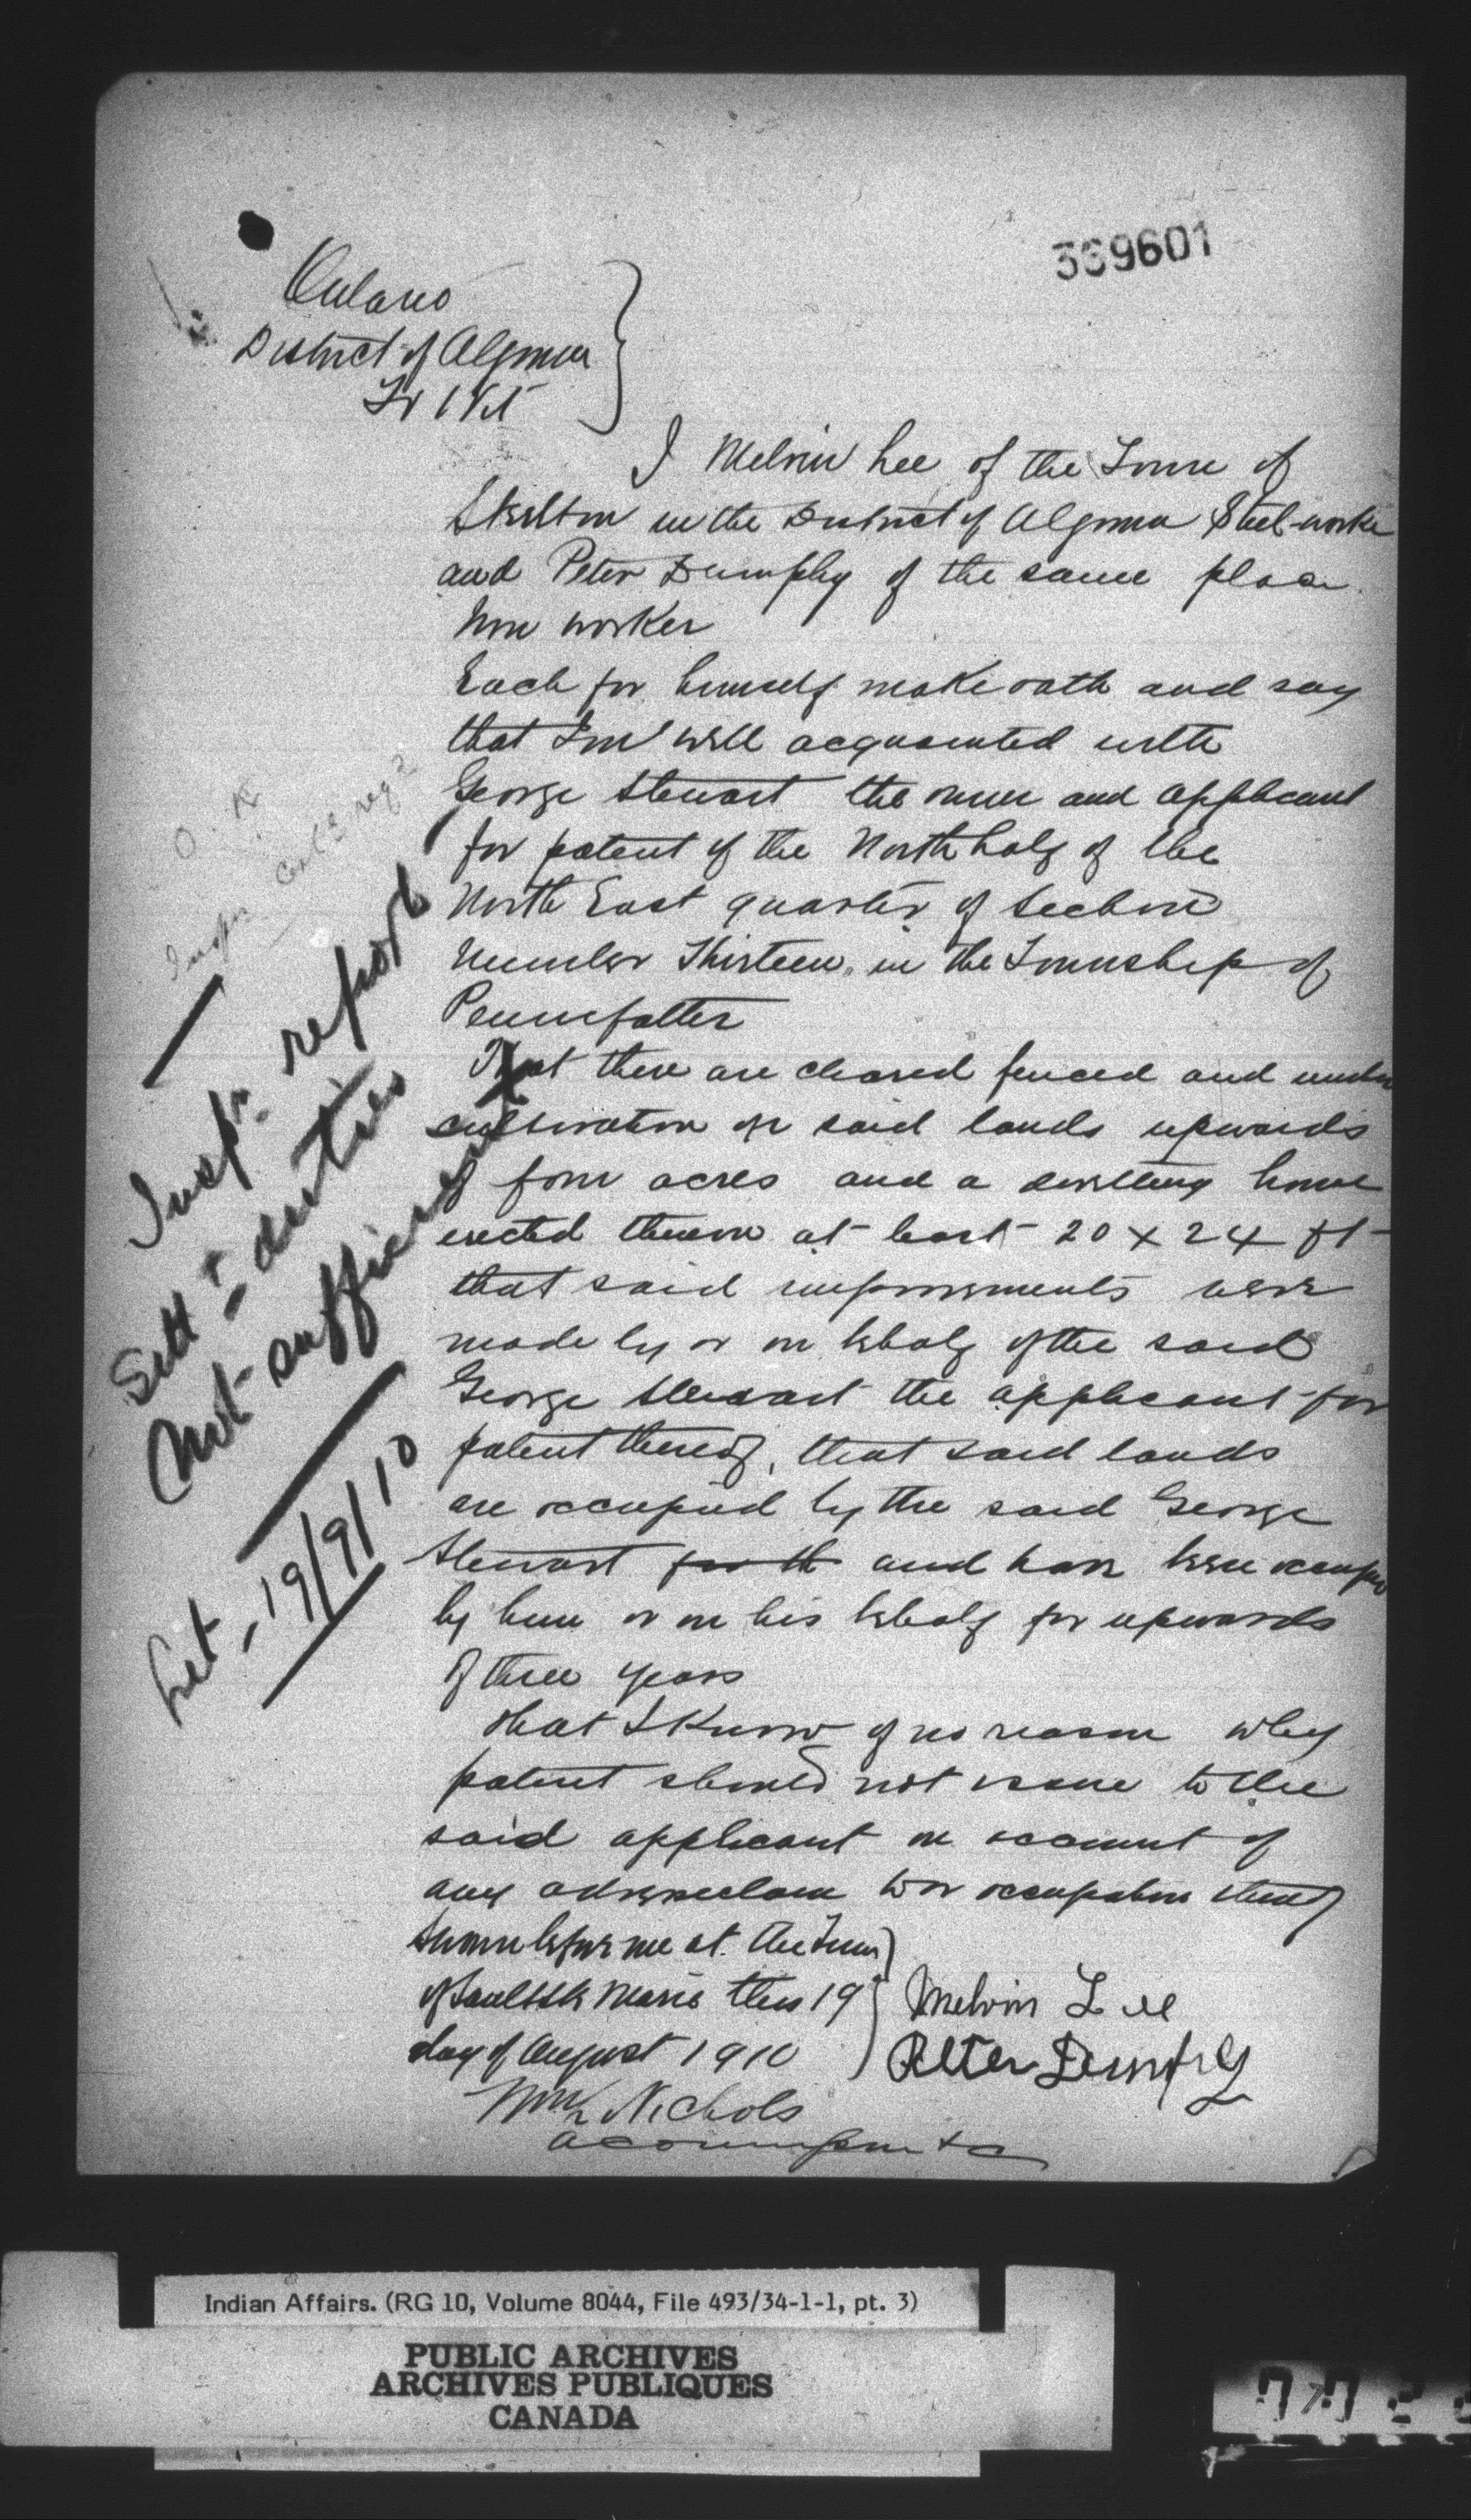 369601
Ontario
District of Algoma
To Wit
I Melvin Lee of the Town of
Steelton in the District of Algoma Steel-worker
and Peter Dumphy of the same place
Iron worker
Each for himself make oath and say
that I am well acquainted with
George Stewart the owner and applicant
for patent of the North half of the
North East quarter of Section
Number Thirteen in the Township of
Pennefather
That there are cleared fenced and under
cultivation on said lands upwards
of four acres and a dwelling house
erected thereon at least 20 x 24 ft
that said improvements were
made by or on behalf of the said
George Stewart the applicant for
patent thereof, that said lands
are occupied by the said George
Stewart for th and have been occupied
by him or on his behalf for upwards
of three years
that I know of no reason why
patent should not issue to the
said applicant on account of
any adverse claim to or occupation thereof
Sworn before me at the Town
of Sault Ste Marie this 19
day of August 1910
Melvin Lee
Peter Dumphy
Wm Nichols
a commr &c
O.K.
Insp
Insp. report
Settt duties
not sufficient
Let - 19/9/10
Indian Affairs. (RG 10, Volume 8044, File 493/34-1-1, pt. 3)
PUBLIC ARCHIVES
ARCHIVES PUBLIQUES
CANADA